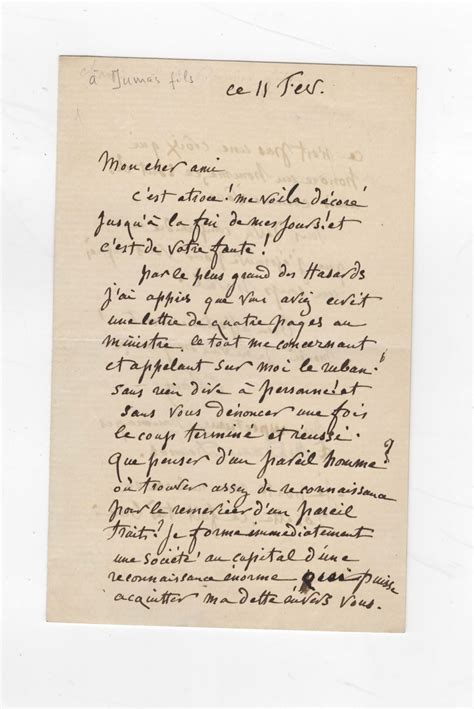 à Dumas fils
ce 11 Fev.
Mon cher ami
c'est atroce! me voila décoré
jusqu'à la fin de mes jours! et
c'est de votre faute!
par le plus grand des Hasards
j'ai appris que vous aviez ecrit
une lettre de quatre pages au
ministre. le tout me concernant
et appelant sur moi le ruban!
sans rien dire à personne! et
sans vous dénoncer une fois
le coup terminé et réussi.
Que penser d'un pareil homme?
où trouver assez de reconnaissance
pour le remercier d'un pareil
trait? je forme immédiatement
une société au capital d'une
reconnaissance énorme qui puisse
acquitter ma dette envers vous.